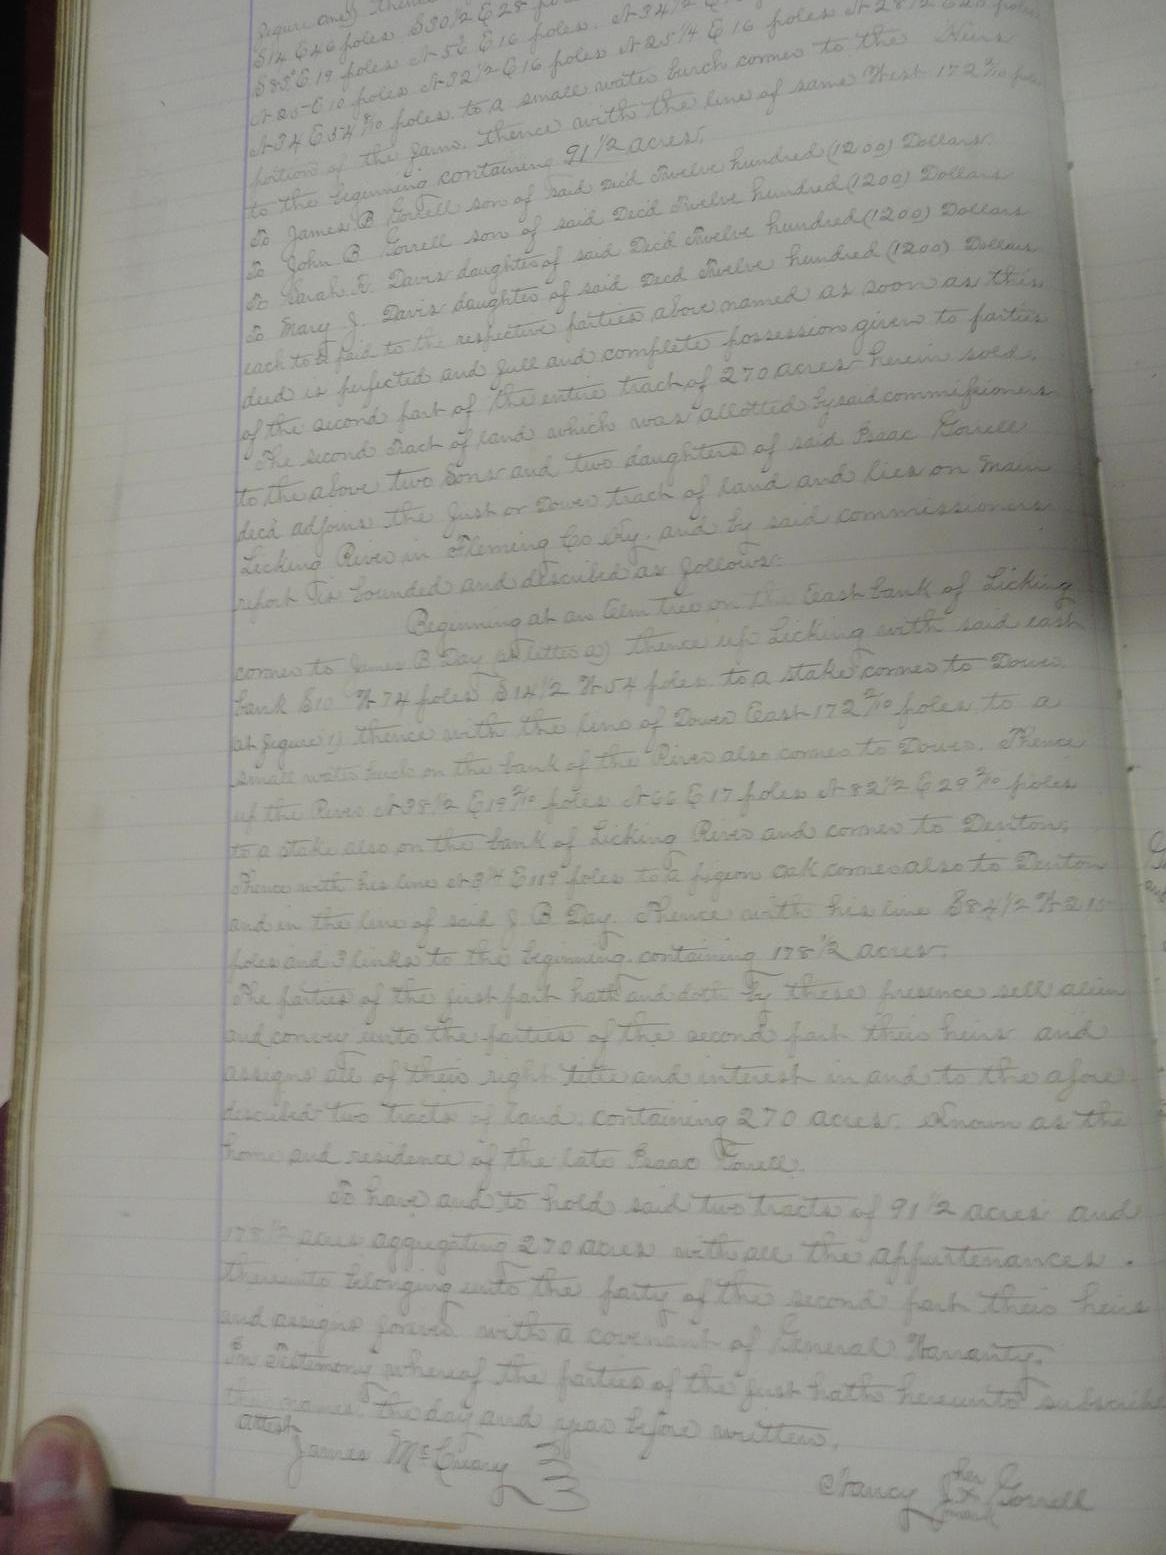 figure one) thence
S14 E46 poles S30 1/2 E28 poles
S85 E19 poles N52 E16 poles. N34 1/2 E
N25 E10 poles N32 1/2 E16 poles N25 1/4 E16 poles N28 1/2 E20 poles
N34 E34 4/10 poles to a small water burch corner to the Heirs
portion of the farm. thence with the line of same West 172 2/10 poles
to the beginning containing 91 1/2 acres.
To James B Gorrell son of said Decd Twelve hundred (1200) Dollars.
To John B Gorrell son of said Decd Twelve hundred (1200) Dollars
To Sarah E. Davis daughter of said Decd Twelve hundred (1200) Dollars
To Mary J. Davis daughter of said Decd Twelve hundred (1200) Dollars
each to be paid to the respective parties above named as soon as this
deed is perfected and full and complete possession given to parties
of the second part of the entire tract of 270 acres herein sold.
The second Tract of land which was allotted by said commissioners
to the above two Sons and two daughters of said Isaac Gorrell
decd adjoins the first or Dower tract of land and lies on Main
Licking River in Fleming Co Ky. and by said commissioners
report is bounded and described as follows:
Beginning at an Elm tree on the East bank of Licking
corner to James B Day (at letter a) thence up Licking with said east
bank S10 W74 poles S14 1/2 W54 poles to a stake corner to Dower
(at figure 1) thence with the line of Dower East 172 2/10 poles to a
small water burch on the bank of the River also corner to Dower. Thence
up the River N38 1/2 E19 2/10 poles N66 E17 poles N82 1/2 E29 2/10 poles
to a stake also on the bank of Licking River and corner to Denton,
Thence with his line N3 1/4 E119 poles to a pigeon oak corner also to Denton
and in the line of said J B Day. Thence with his line S84 1/2 W215
poles and 3 links to the beginning. containing 178 1/2 acres.
The parties of the first part hath and doth by these presence sell alien
and convey unto the parties of the second part their heirs and
assigns all of their right title and interest in and to the afore
described two tracts of land. containing 270 acres. Known as the
home and residence of the late Isaac Gorrell.
To have and to hold said two tracts of 91 1/2 acres and
178 1/2 acres aggregating 270 acres with all the appurtenances.
thereunto belonging unto the party of the second part their heirs
and assigns forever with a covenant of General Warranty.
In Testimony whereof the parties of the first hath hereunto subscribe
names. the day and year before written.
Attest
James McCleary
Nancy J. her x mark Gorrell